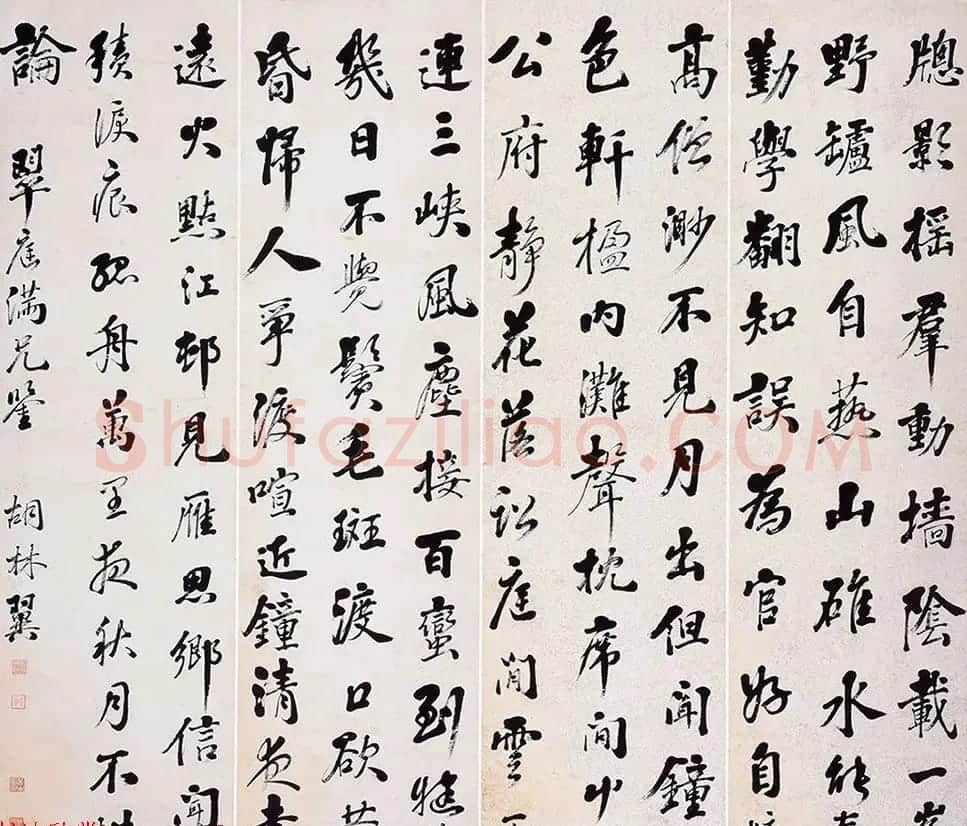 牕影摇羣動墻陰載一
野罏風自爇山碓水能
勤學翻知誤為官好自
高僧渺不見月出但聞鐘
色軒楹内灘聲枕席間
公府靜花落訟庭閒雲
連三峽風塵接百蠻到
幾日不覺鬢毛斑渡口欲
昏歸人爭渡喧近鐘清
遠火點江邨見雁思鄉信聞
積淚痕孤舟萬里夜秋月不
論 翠崖滿兄鉴 胡林翼
Shufaziliao.COM